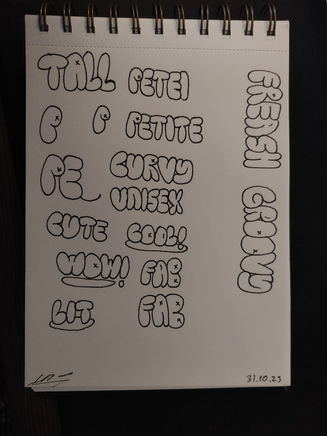 TALL
PETEI
P P
PETITE
PE
CURVY
UNISEX
CUTE
COOL!
WOW!
FAB
LIT
FAB
GROOVY
31.10.23